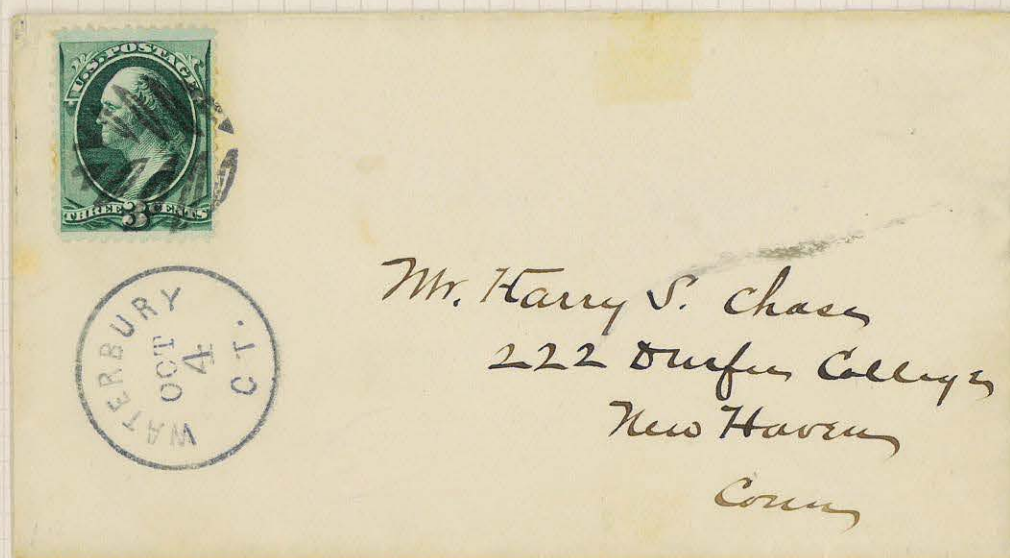 U.S. POSTAGE
THREE 3 CENTS
WATERBURY
OCT
4
CT.
Mr. Harry S. Chase
222 Durfee College
New Haven
Conn